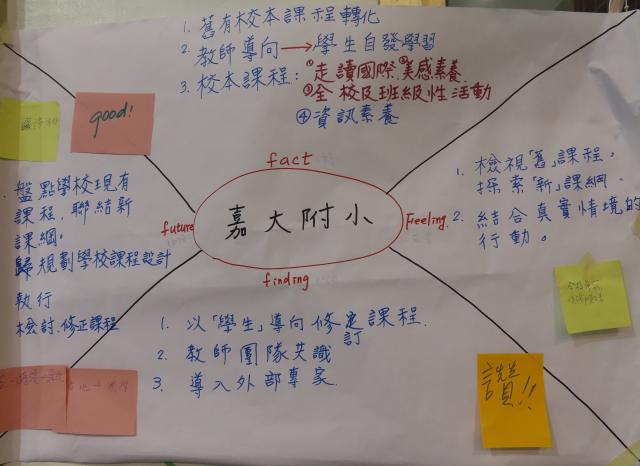 1. 舊有校本課程轉化
2. 教師導向→學生自發學習
3. 校本課程：①走讀國際②美感素養
③全校及班級性活動
④資訊素養
good!
fact
嘉大附小
future
Feeling
finding
盤點學校現有
課程，聯結新
課綱。
歸規劃學校課程設計
執行
檢討.修正課程
1. 檢視「舊」課程，
探索「新」課綱。
2. 結合真實情境的
行動。
1. 以「學生」導向修定課程.
訂
2. 教師團隊共識
3. 導入外部專家
讚!!